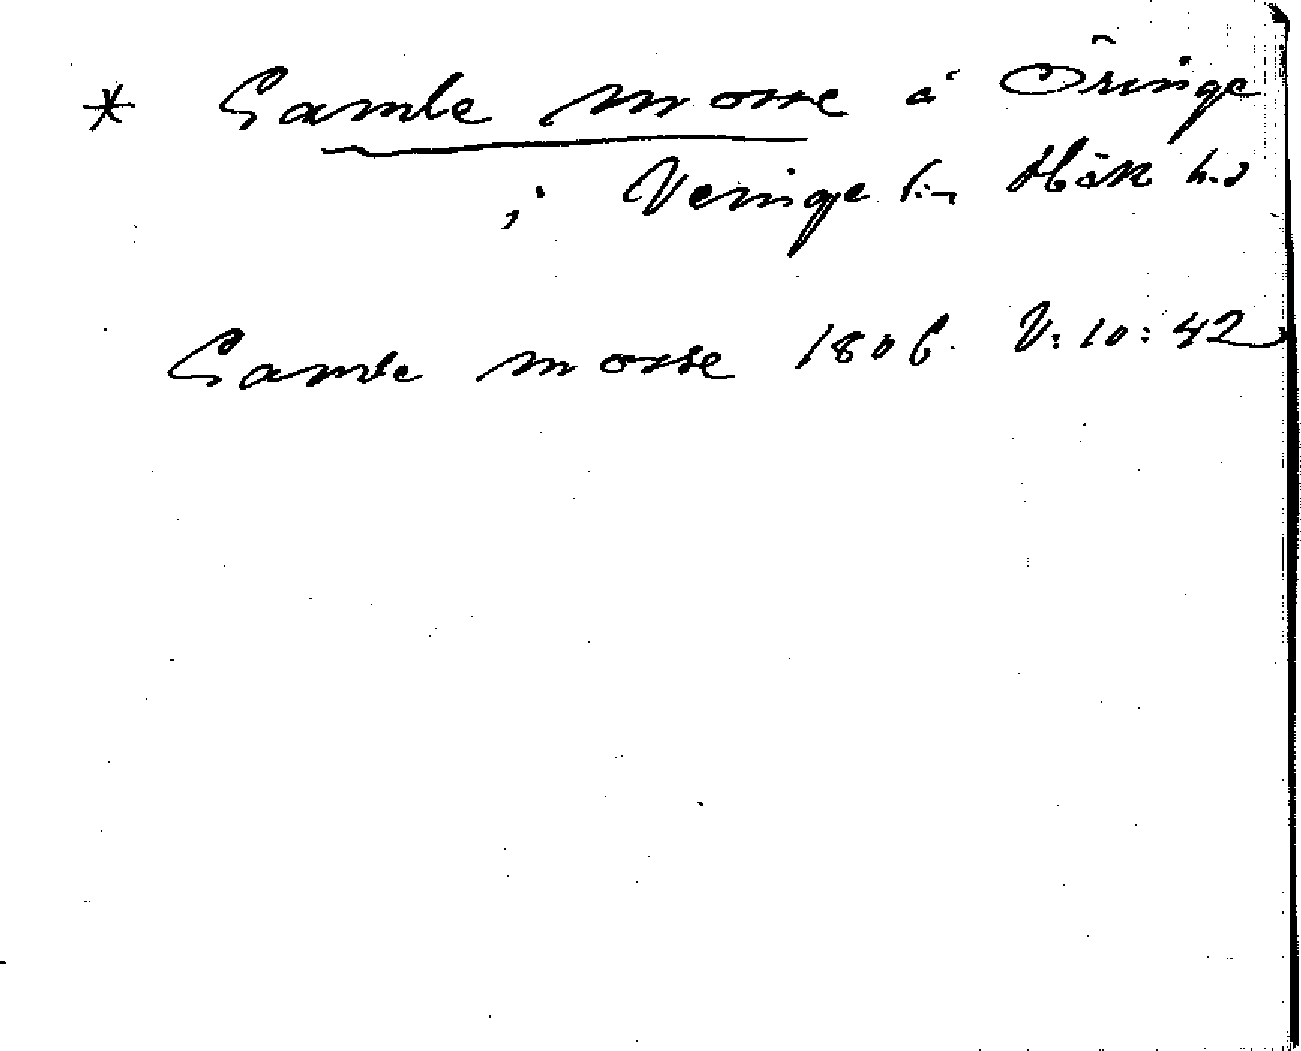 * Gamle mosse å Öringe
i Veinge sn Höks hd
Gamle mosse 1806. V:10:42